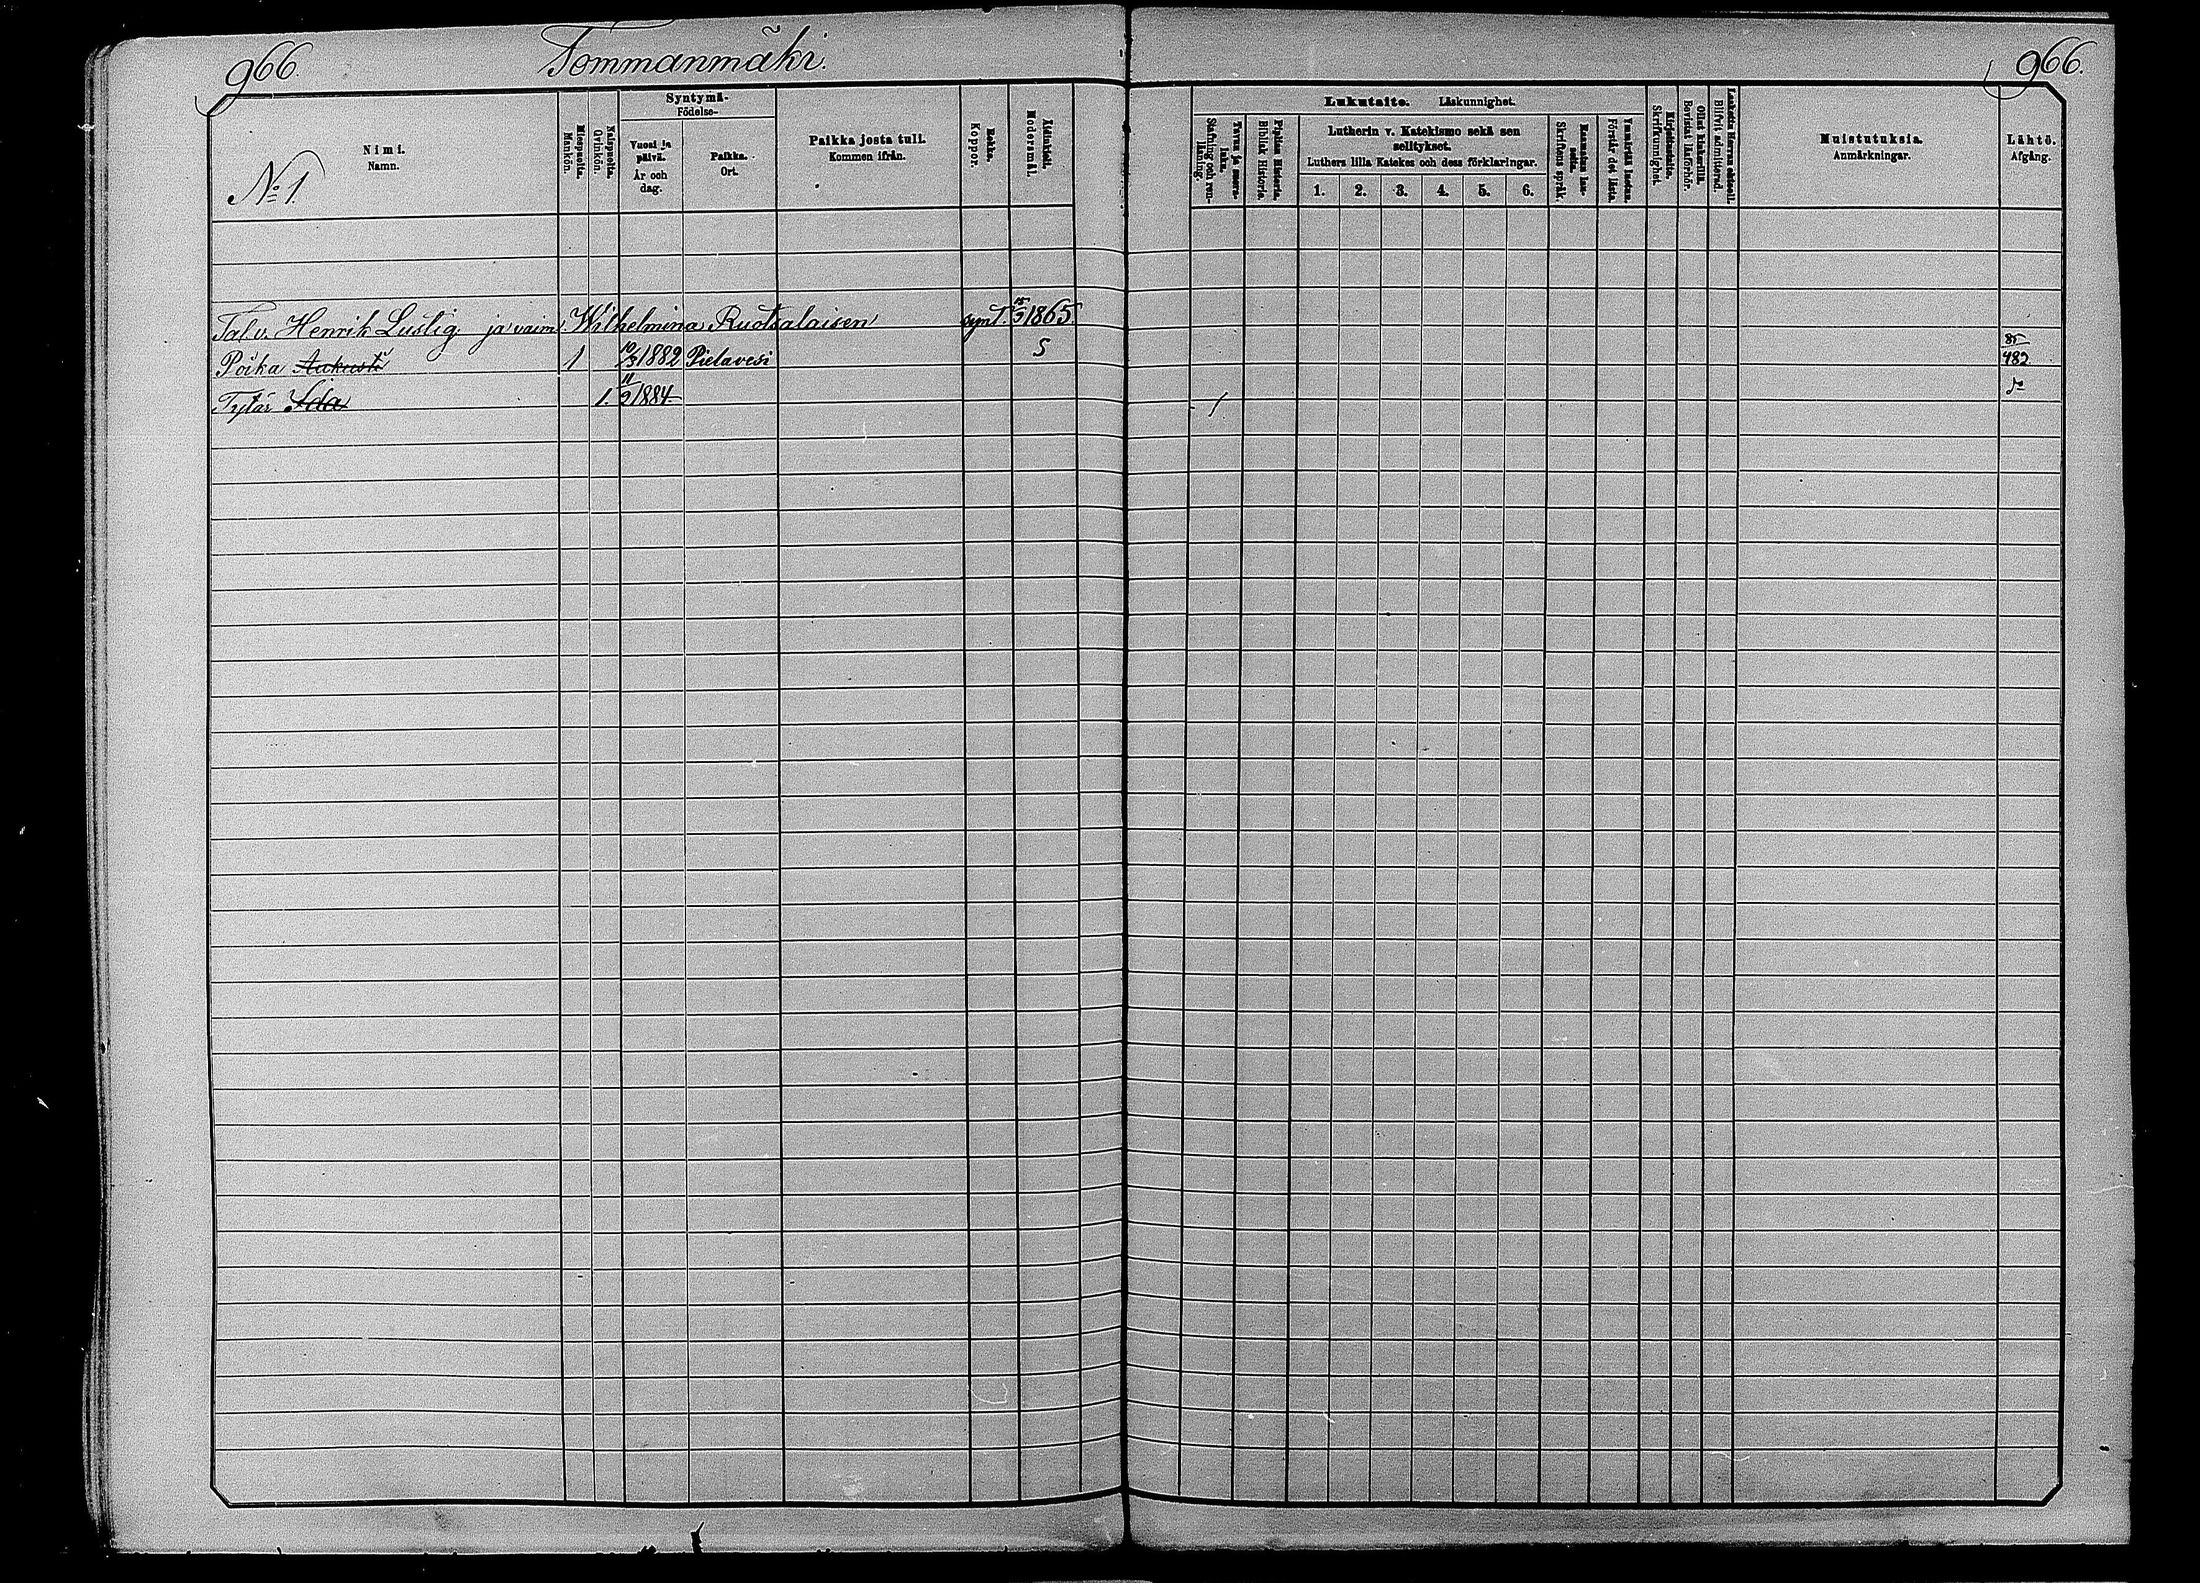 966. Tommanmäki. 966.
Syntymä-
Födelse-
Nimi.
Namn.
Miespuolia.
Mankön.
Naispuolia.
Qvinkön.
Vuosi ja
päivä.
År och
dag.
Paikka.
Ort.
Paikka josta tuli.
Kommen ifrån.
Rokko.
Koppor.
Äidinkieli.
Modersmål.
Lukutaito. Läskunnighet.
Tavuu ja suora-
luku.
Stafning och ren-
läsning.
Piplian Historia.
Biblisk Historia.
Lutherin v. Katekismo sekä sen
selitykset.
Luthers lilla Katekes och dess förklaringar.
1. 2. 3. 4. 5. 6.
Raamatun lau-
seita.
Skriftens språk.
Ymmärtää luetun.
Förstår det lästa.
Kirjoitustaito.
Skrifkunnighet.
Ollut lukukerillä.
Bevistat läsförhör.
Laskettu Herran ehtooll.
Blifvit admitterad.
Muistutuksia.
Anmärkningar.
Lähtö.
Afgång.
No 1.
Tal.v. Henrik Lustig ja vaim. Wilhelmina Ruotsalaisen synt. 15/5 1865
Poika Aukusti 1 10/3 1882 Pielavesi S 85/482
Tytär Ida 1. 11/9 1884 /